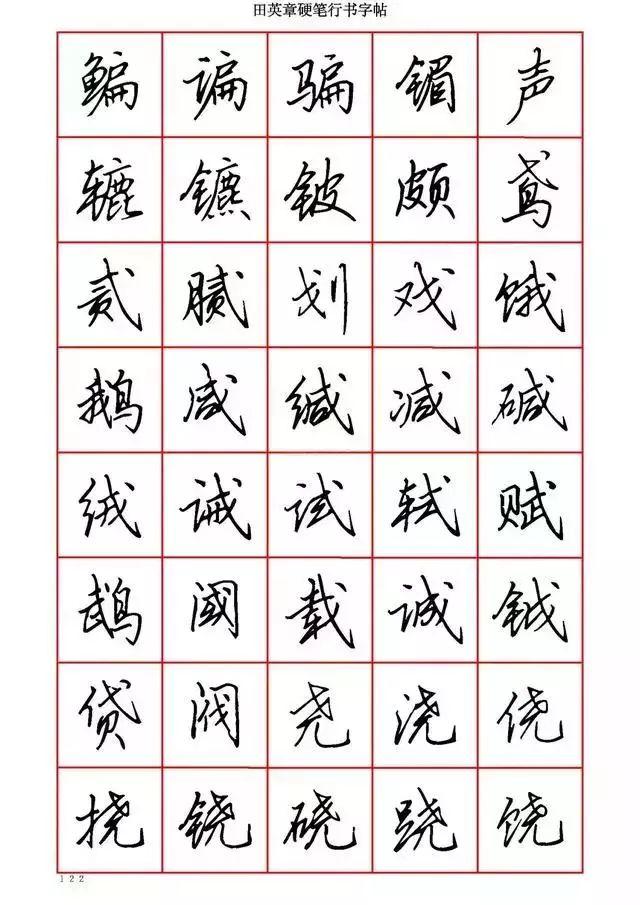 田英章硬笔行书字帖
鳊 谝 骗 镅 声
辘 镳 铍 颇 鸢
贰 腻 划 戏 饿
鹅 咸 缄 减 碱
绒 诫 试 轼 赋
鹉 阈 载 诚 钺
贷 阀 尧 浇 侥
挠 铙 硗 跷 饶
122